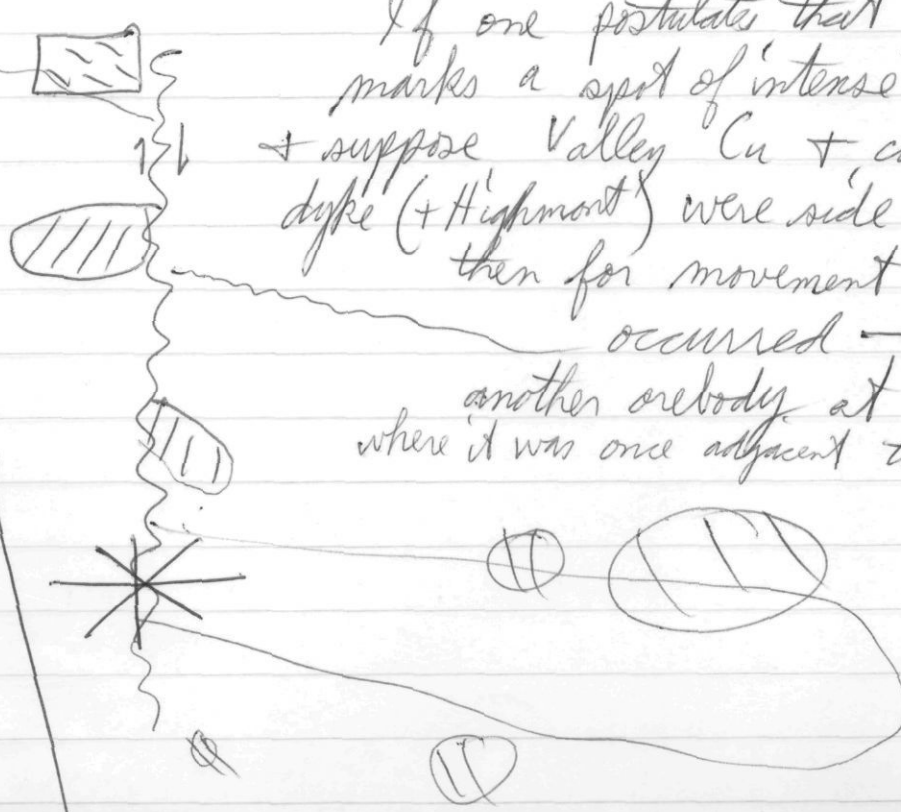 If one postulates that
marks a spot of intense
+ suppose Valley Cu +
dyke (+ Highmont) were side
then for movement
occurred —
another orebody at
where it was once adjacent